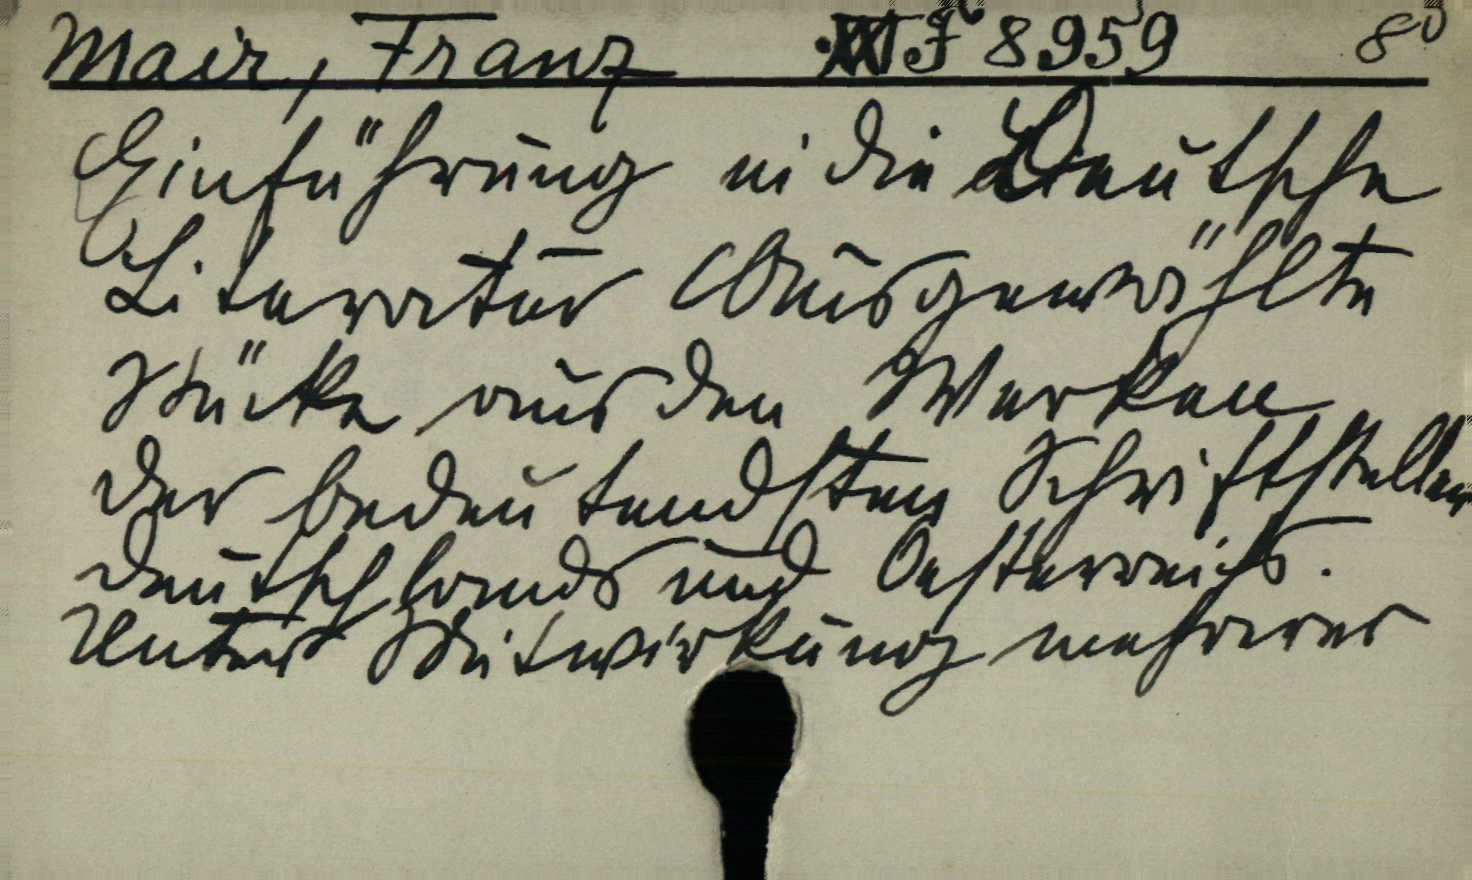 Mair, Franz F 8959 8°
Einführung in die Deutsche
Literatur Ausgewählte
Stücke aus den Werken
der bedeutendsten Schriftsteller
Deutschlands und Oesterreichs.
Unter Mitwirkung mehrerer